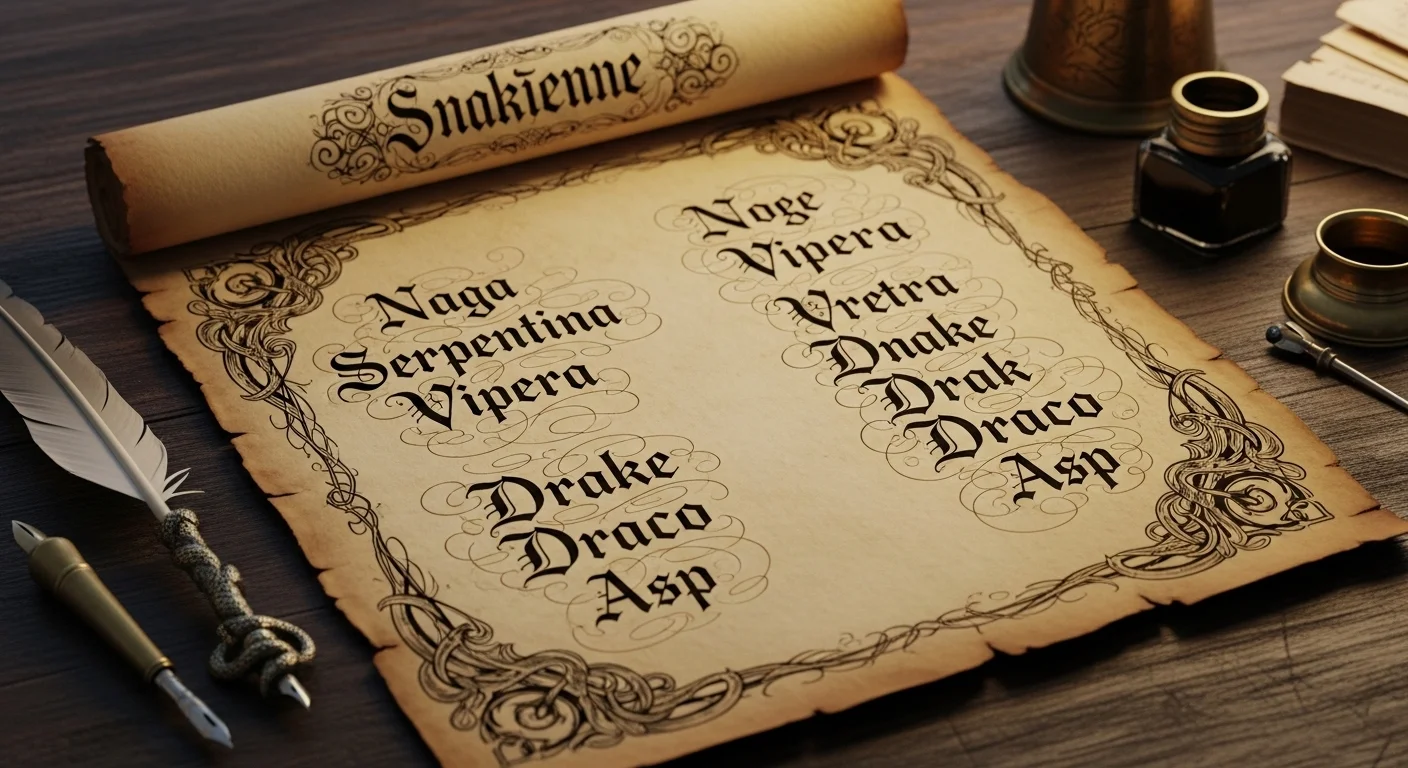 Snakīenne
Naga
Serpentina
Vipera
Drake
Draco
Asp
Noge
Vipera
Vretra
Dnake
Drak
Draco
Asp